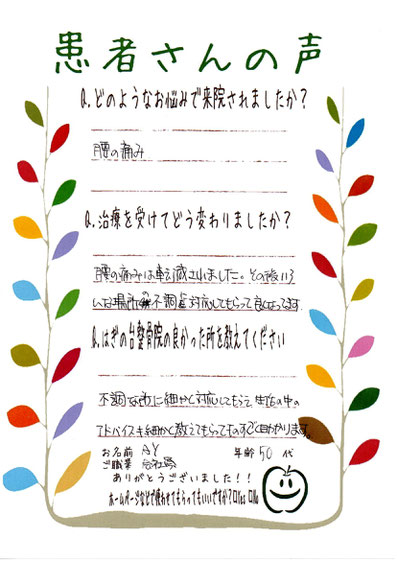 患者さんの声
Q.どのようなお悩みで来院されましたか?
腰の痛み
Q.治療を受けてどう変わりましたか?
腰の痛みは軽減されました。その後いろ
いろな場所の不調も対応してもらって良くなってます。
Q.はぎの台整骨院の良かった所を教えてください
不調な所に細かく対応してもらえて生活の中の
アドバイスも細かく教えてもらってものすごく助かります。
お名前 A.Y 年齢 50 代
ご職業 会社員
ありがとうございました!!
ホームページなどで使わせてもらってもいいですか?□Yes □No